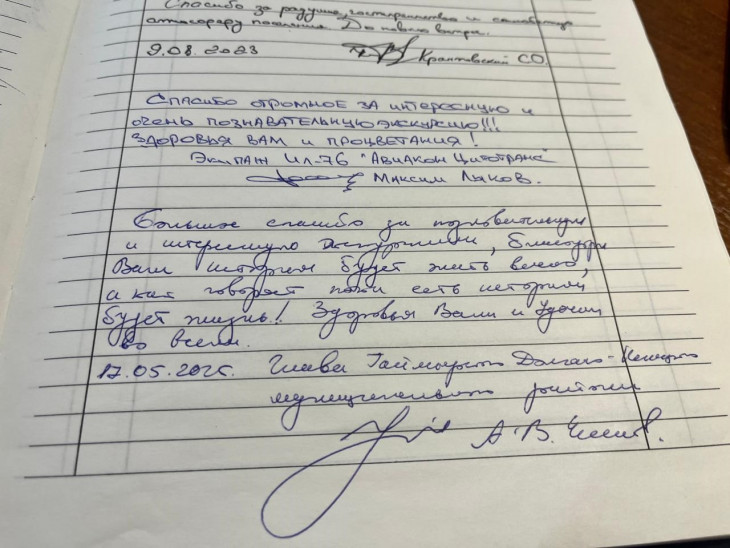 Спасибо за радушие, гостеприимство и
атмосферу поселения. До нового встречи.
9.08.2023 Крантовский С.О.
Спасибо огромное за интересную и
очень познавательную экскурсию!!!
Здоровья Вам и процветания!
Экипаж Ил-76 "Авиакон Цитотранс"
Максим Ляхов.
Большое спасибо за познавательную
и интересную экскурсию, благодаря
Вам история будет жить вечно,
а как говорят пока есть история
будет жизнь! Здоровья Вам и Удачи
во всём.
17.05.2025. Глава Таймырского Долгано-Ненецкого
муниципального района
А.В.